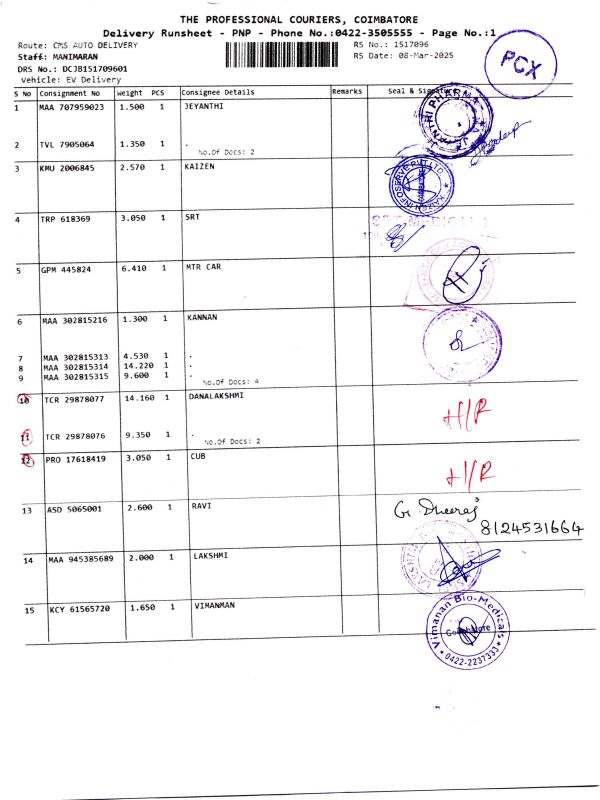 THE PROFESSIONAL COURIERS, COIMBATORE
Delivery Runsheet - PNP - Phone No.:0422-3505555 - Page No.:1
Route: CMS AUTO DELIVERY RS No.: 1517096
Staff: MANIMARAN RS Date: 08-Mar-2025
DRS No.: DCJB151709601
Vehicle: EV Delivery
PCX
S No Consignment No Weight PCS Consignee Details Remarks Seal &
1 MAA 707959023 1.500 1 JEYANTHI
2 TVL 7905064 1.350 1 .
No.Of Docs: 2
3 KMU 2006845 2.570 1 KAIZEN
4 TRP 618369 3.050 1 SRT
5 GPM 445824 6.410 1 MTR CAR
6 MAA 302815216 1.300 1 KANNAN
7 MAA 302815313 4.530 1 .
8 MAA 302815314 14.220 1 .
9 MAA 302815315 9.600 1 .
No.Of Docs: 4
10 TCR 29878077 14.160 1 DANALAKSHMI H/R
11 TCR 29878076 9.350 1 .
No.Of Docs: 2
12 PRO 17618419 3.050 1 CUB H/R
13 ASD 5065001 2.600 1 RAVI G. Dheeraj
8124531664
14 MAA 945385689 2.000 1 LAKSHMI
15 KCY 61565720 1.650 1 VIMANMAN
Vimanan Bio-Medicals
Coimbatore
* 0422-2237333 *